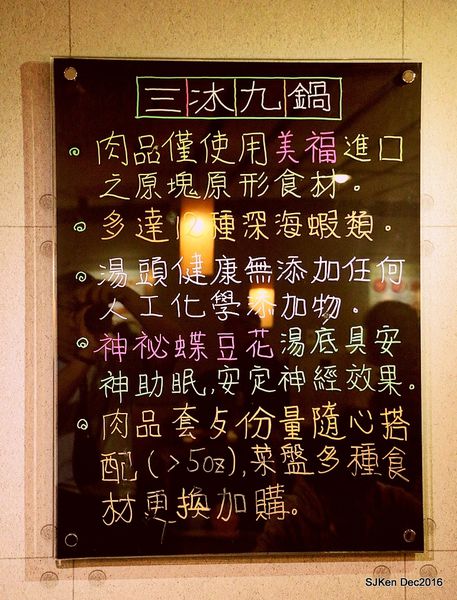 三冰九鍋
肉品僅使用美福進口
之原塊原形食材。
多達12種深海蝦類。
湯頭健康無添加任何
人工化學添加物。
神祕蝶豆花湯底具安
神助眠,安定神經效果。
肉品套夕份量隨心搭
配(>5oz),菜盤多種食
材更換加購。
SJKen Dec2016